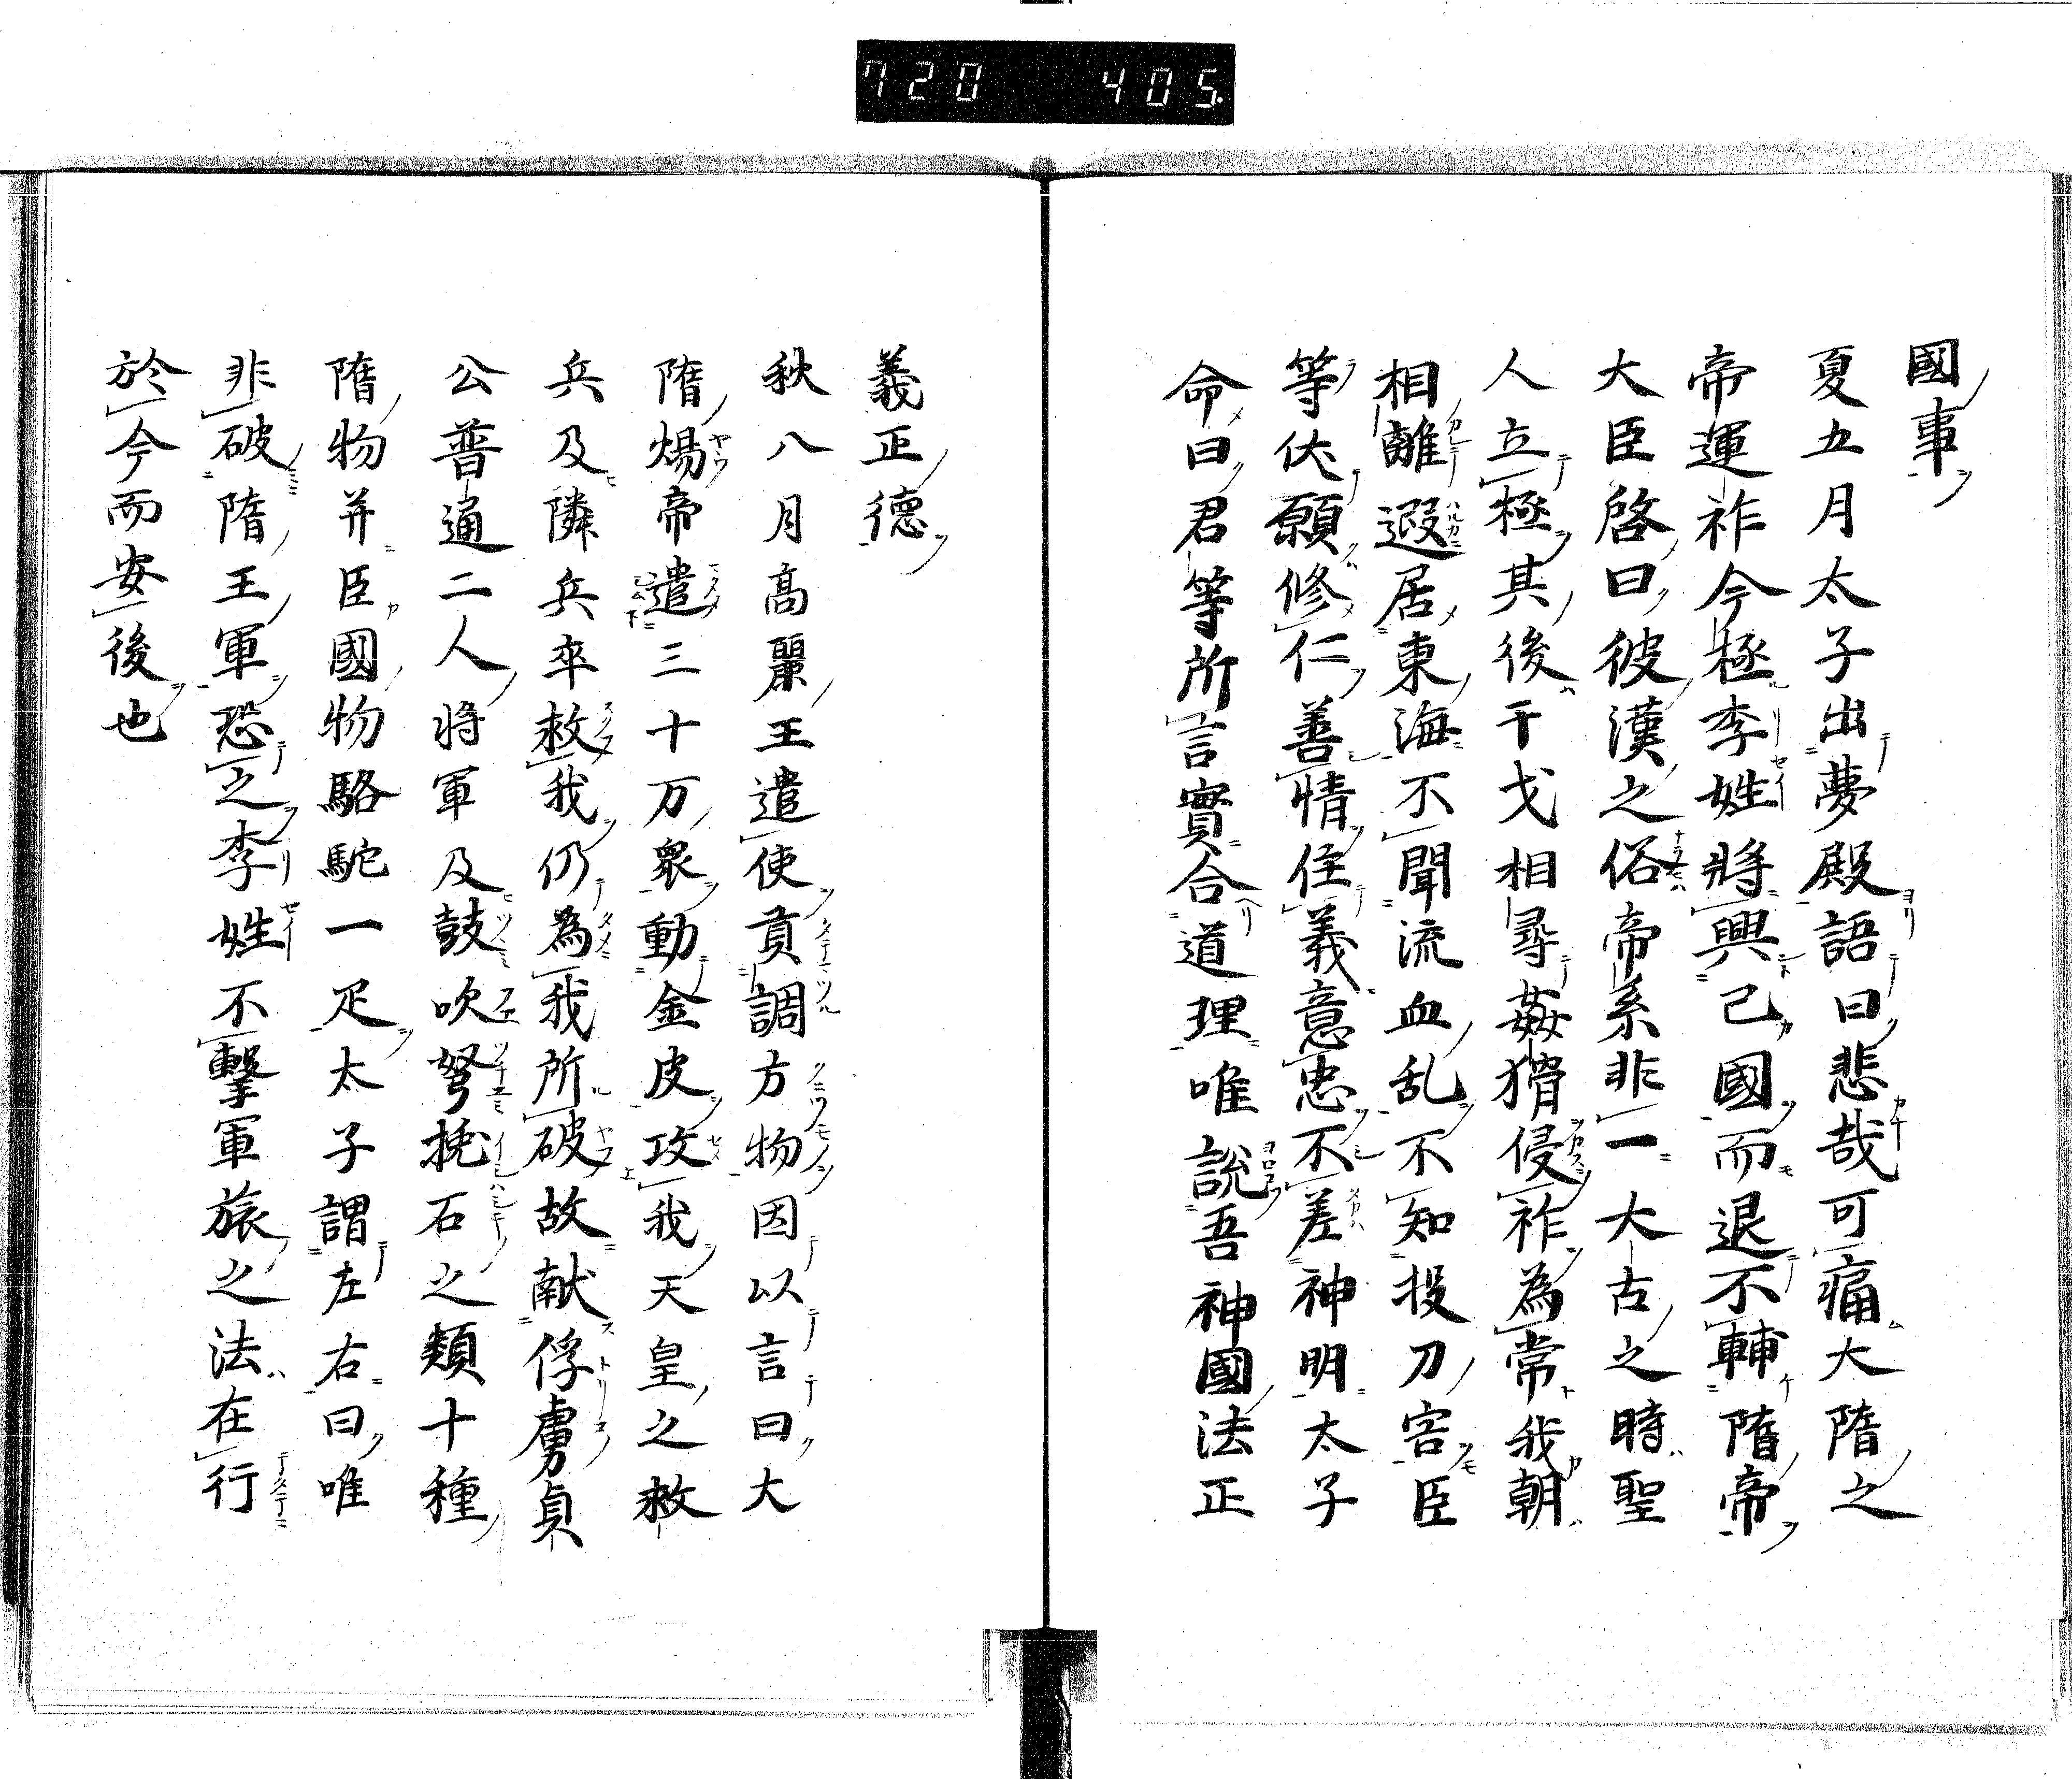 720 405
國事
夏五月太子出夢殿語曰悲哉可痛大隋之
帝運祚今極李姓將興己國而退不輔隋帝
大臣啓曰彼漢之俗帝系非一大古之時聖
人立極其後干戈相尋姦猾侵祚為常我朝
相離遐居東海不聞流血乱不知投刀害臣
等伏願修仁善情住義意忠不差神明太子
命曰君等所言實合道理唯説吾神國法正
義正德
秋八月高麗王遣使貢調方物因以言曰大
隋煬帝遣三十万衆動金皮攻我天皇之救
兵及隣兵卒救我仍為我所破故献俘虜貞
公普通二人将軍及鼓吹弩抛石之類十種
隋物并臣國物駱駝一疋太子謂左右曰唯
非破隋王軍恐之李姓不擊軍旅之法在行
於今而安後也